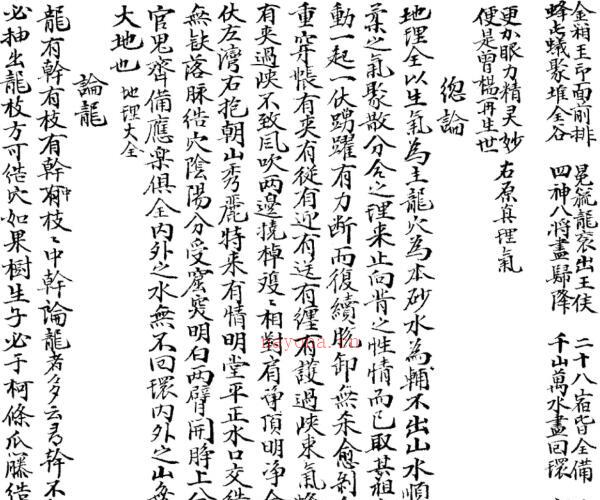 金箱玉印面前排 冕旒龍袞出王侯 二十八宿皆全備
蜂屯蟻聚堆金谷 四神八將盡歸降 千山萬水盡回環
更加眼力精灵妙
便是曾楊再生世 右原真理氣
總論
地理全以生氣為主龍穴為本砂水為輔不出山水順
柔之氣聚散分合之理来止向背之性情而已取其祖
動一起一伏踴躍有力断而復續脱卸無余愈剝
重穿帳有夾有従有近有送有纏有護過峡来氣蜂
有夾過峡不致風吹两邊撓棹殹〻相對肩净頂明净
伏左湾右抱朝山秀麗特来有情明堂平正水口交结
無缺落脉结穴陰陽分受窩突明白两臂開睁上
官鬼齊備應楽俱全内外之水無不回環内外之山無
大地也 地理大全
論龍
龍有幹有枝有幹中枝〻中幹論龍者多云尋幹不
必抽出龍枝方可结穴如果樹生子必于柯條瓜藤结
nayona.cn